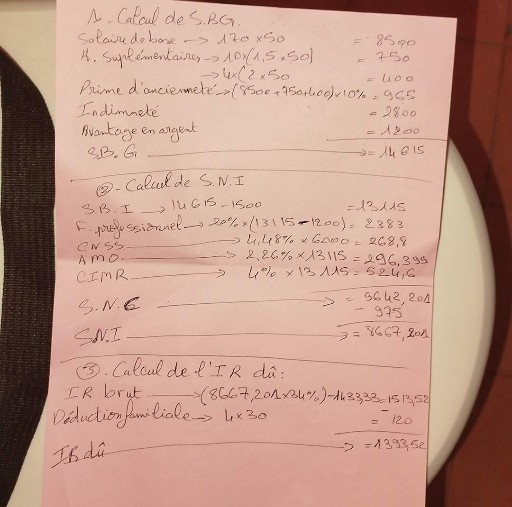 1. Calcul de S.B.G.
Salaire de base → 170 x 50 = 8500
H. Suplémentaires → 10 x (1,5 x 50) = 750
→ 4 x (2 x 50 = 400
Prime d'ancienneté → (8500 + 750 + 400) x 10% = 965
Indimneté = 2800
Avantage en argent = 1200
S.B.G → = 14615
② - Calcul de S.N.I
S.B.I → 14615 - 1500 = 13115
F. professionnel → 20% x (13115 - 1200) = 2383
CNSS → 4,48% x 6000 = 268,8
AMO → 2,26% x 13115 = 296,399
CIMR → 4% x 13115 = 524,6
S.N.C → = 9642,201
- 975
S.N.I → = 8667,201
③. Calcul de l'IR dû:
IR brut → (8667,201 x 34%) - 1433,33 = 1513,52
Déduction familiale → 4 x 30 - 120
IR dû → = 1393,52